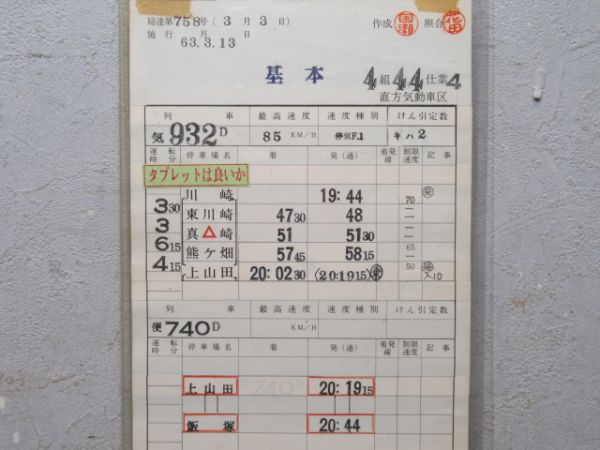 局達第758号(3月3日) 作成 国瀬 照合 花田
施行 月 日
63.3.13
基本 4組44仕業4
直方気動車区
列車 最高速度 速度種別 けん引定数
気932D 85KM/H 停気F.1 キハ2
運転時分 停車場名 着 発(通) 着発線 制限速度 記事
タブレットは良いか
川崎 19:44 70
330 東川崎 4730 48
3 真崎 51 5130
615 熊ケ畑 5745 5815 65
415 上山田 20:0230 (20:1915) 50 入10
列車 最高速度 速度種別 けん引定数
便740D KM/H
運転時分 停車場名 着 発(通) 着発線 制限速度 記事
上山田 740D 20:1915
飯塚 20:44